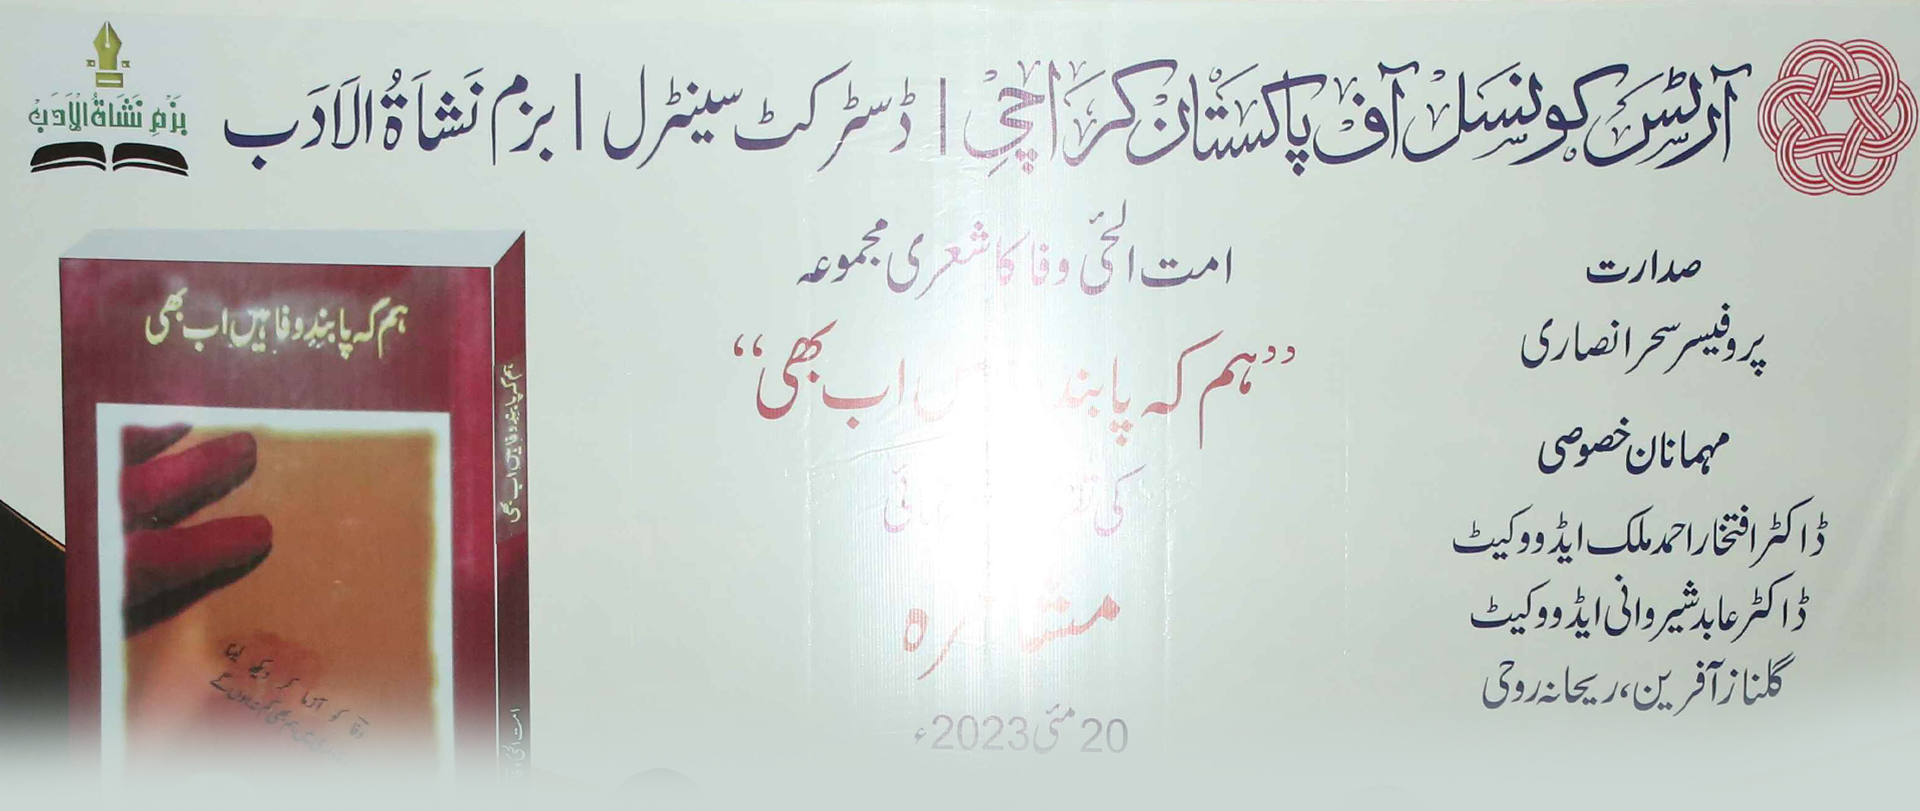 آرٹس کونسل آف پاکستان کراچی | ڈسٹرکٹ سینٹرل | بزم نَشاَۃُ الاَدَب
بَزمِ نَشَاۃُ الْاَدَبْ
امت الحئی وفا کا شعری مجموعہ
”ہم کہ پابند اب بھی“
کی
مشاعرہ
20 مئی 2023ء
صدارت
پروفیسر سحر انصاری
مہمانان خصوصی
ڈاکٹر افتخار احمد ملک ایڈووکیٹ
ڈاکٹر عابد شیروانی ایڈووکیٹ
گلناز آفرین، ریحانہ روحی
ہم کہ پابندِ وفا ہیں اب بھی
ہم کہ پابند وفا ہیں اب بھی
وفا کو آزما کر دیکھ لینا